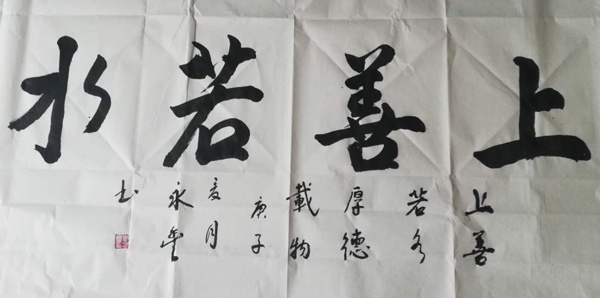 上善若水
上善
若水
厚德
載物
庚子
夏月
永
书